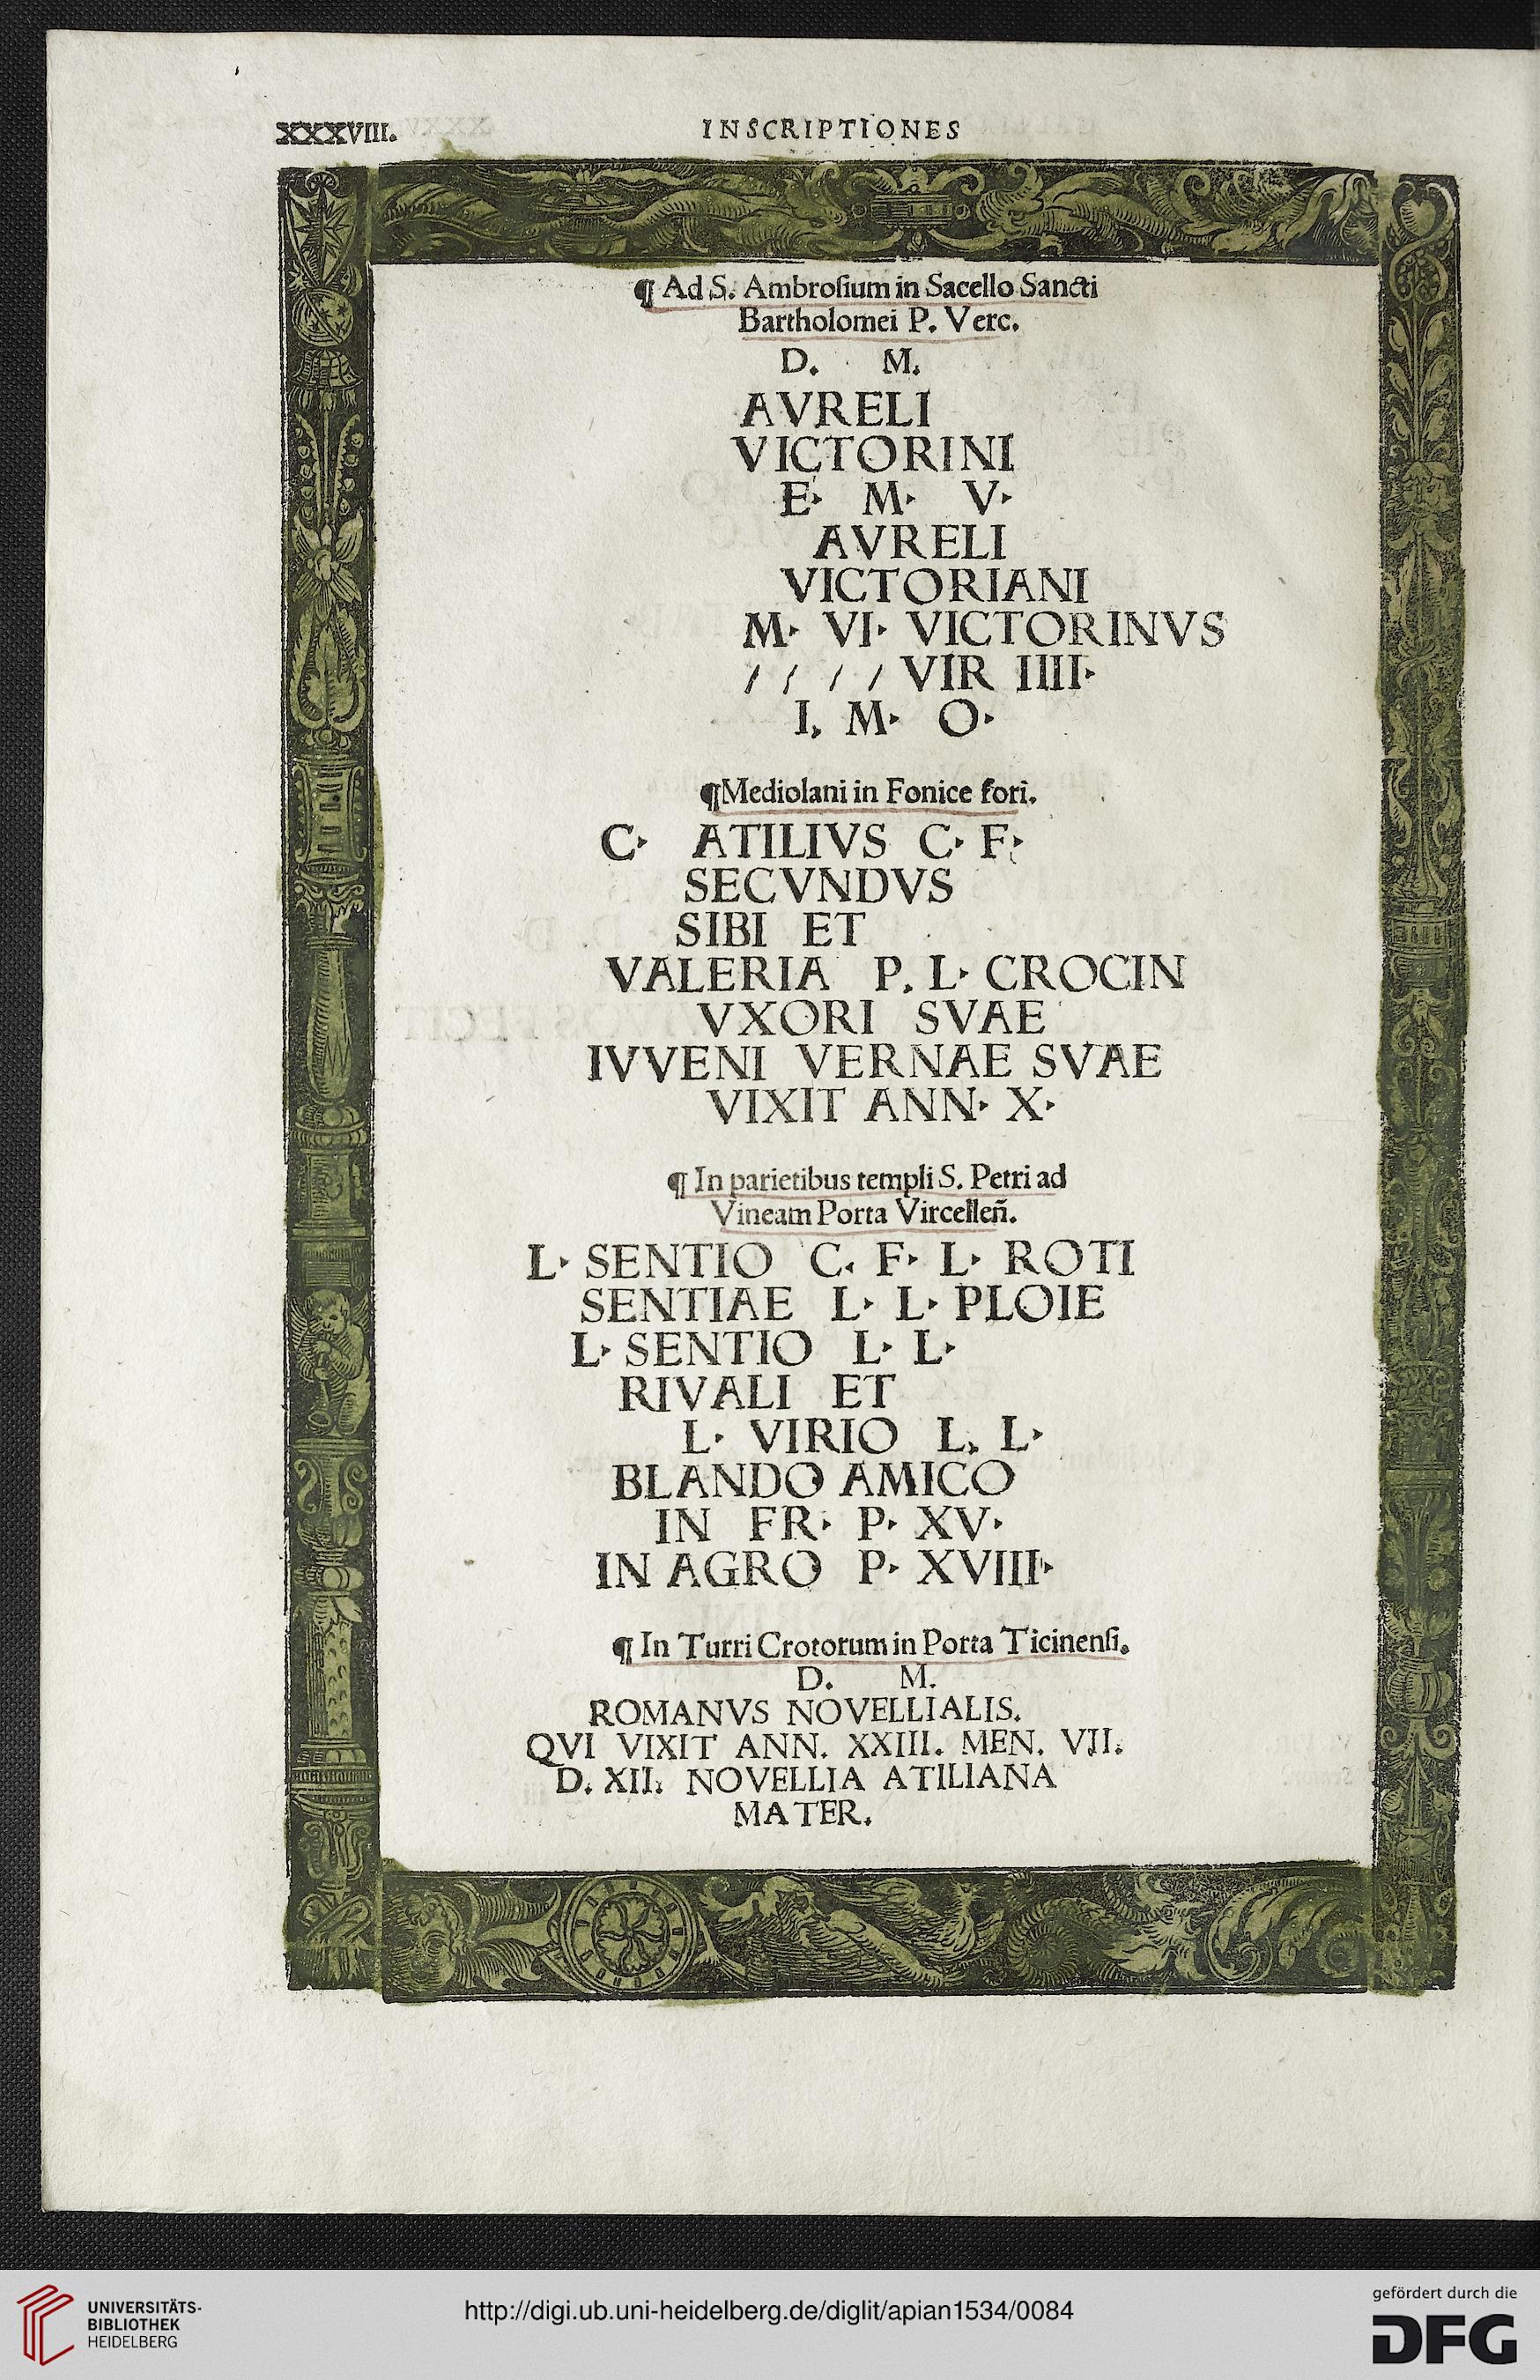 XXXVIII.
INSCRIPTIONES
¶ Ad S. Ambroſium in Sacello Sancti
Bartholomei P. Verc.
D. M.
AVRELI
VICTORINI
E‣ M‣ V‣
AVRELI
VICTORIANI
M‣ VI‣ VICTORINVS
/ / / / VIR IIII‣
I, M‣ O‣
¶Mediolani in Fonice fori.
C‣ ATILIVS C‣ F‣
SECVNDVS
SIBI ET
VALERIA P, L‣ CROCIN
VXORI SVAE
IVVENI VERNAE SVAE
VIXIT ANN‣ X‣
¶ In parietibus templi S. Petri ad
Vineam Porta Vircelleñ.
L‣ SENTIO C‣ F‣ L‣ ROTI
SENTIAE L‣ L‣ PLOIE
L‣ SENTIO L‣ L‣
RIVALI ET
L‣ VIRIO L, L‣
BLANDO AMICO
IN FR‣ P‣ XV‣
IN AGRO P‣ XVIII‣
¶ In Turri Crotorum in Porta Ticinenſi.
D. M.
ROMANVS NOVELLIALIS.
QVI VIXIT ANN. XXIII. MEN. VII.
D. XII. NOVELLIA ATILIANA
MATER.
UNIVERSITÄTS-
BIBLIOTHEK
HEIDELBERG
http://digi.ub.uni-heidelberg.de/diglit/apian1534/0084
gefördert durch die
DFG